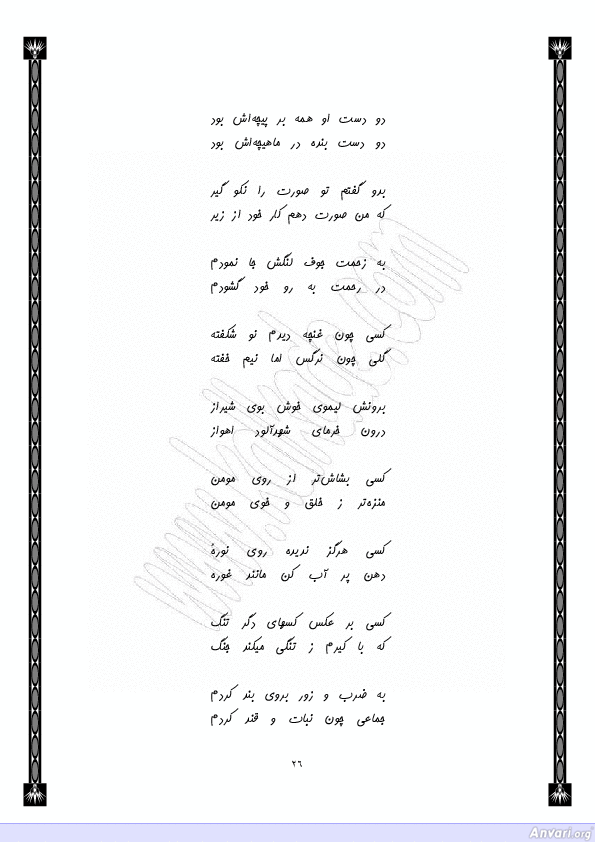 دو دست او همه بر پیچه‌اش بود
دو دست بنده در ماهیچه‌اش بود
بدو گفتم تو صورت را نکو گیر
که من صورت دهم کار خود از زیر
به زحمت جوف لنگش جا نمودم
در رحمت به رو خود گشودم
کسی چون غنچه دیدم نو شکفته
گلی چون نرگس اما نیم خفته
برونش لیموی خوش بوی شیراز
درون خرمای شهدآلود اهواز
کسی بشاش‌تر از روی مومن
منزه‌تر ز خلق و خوی مومن
کسی هرگز ندیده روی نوره
دهن پر آب کن مانند غوره
کسی بر عکس کسهای دگر تنگ
که با کیرم ز تنگی میکند جنگ
به ضرب و زور بروی بند کردم
جماعی چون نبات و قند کردم
۲۶
Anvari.org